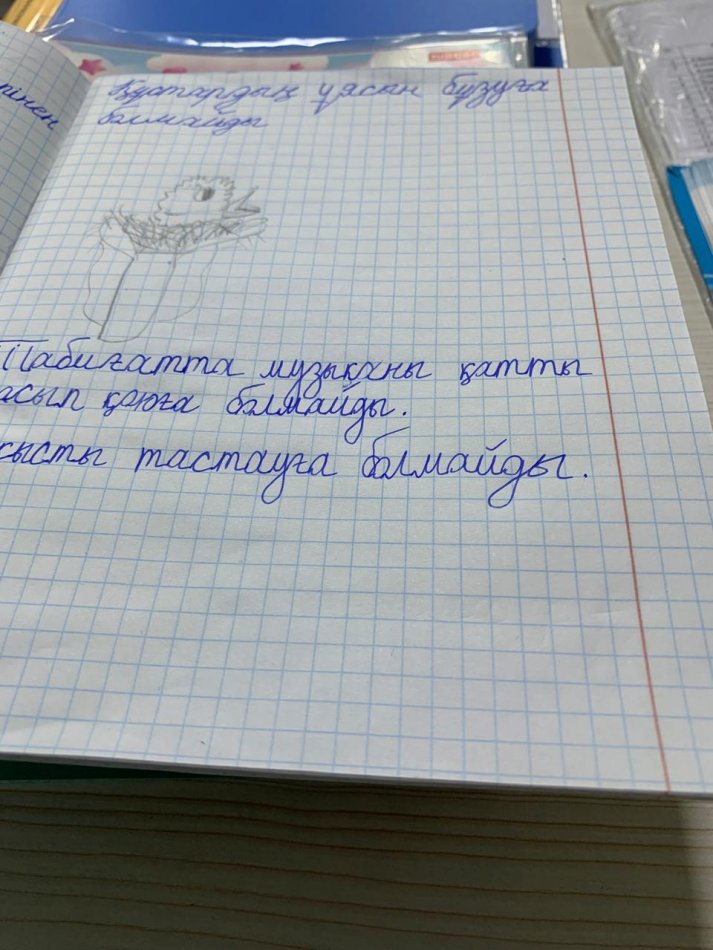 рінен
Құстардың ұясын бұзуға
болмайды
Табиғатта музыканы қатты
асып қоюға болмайды.
сысты тастауға болмайды.